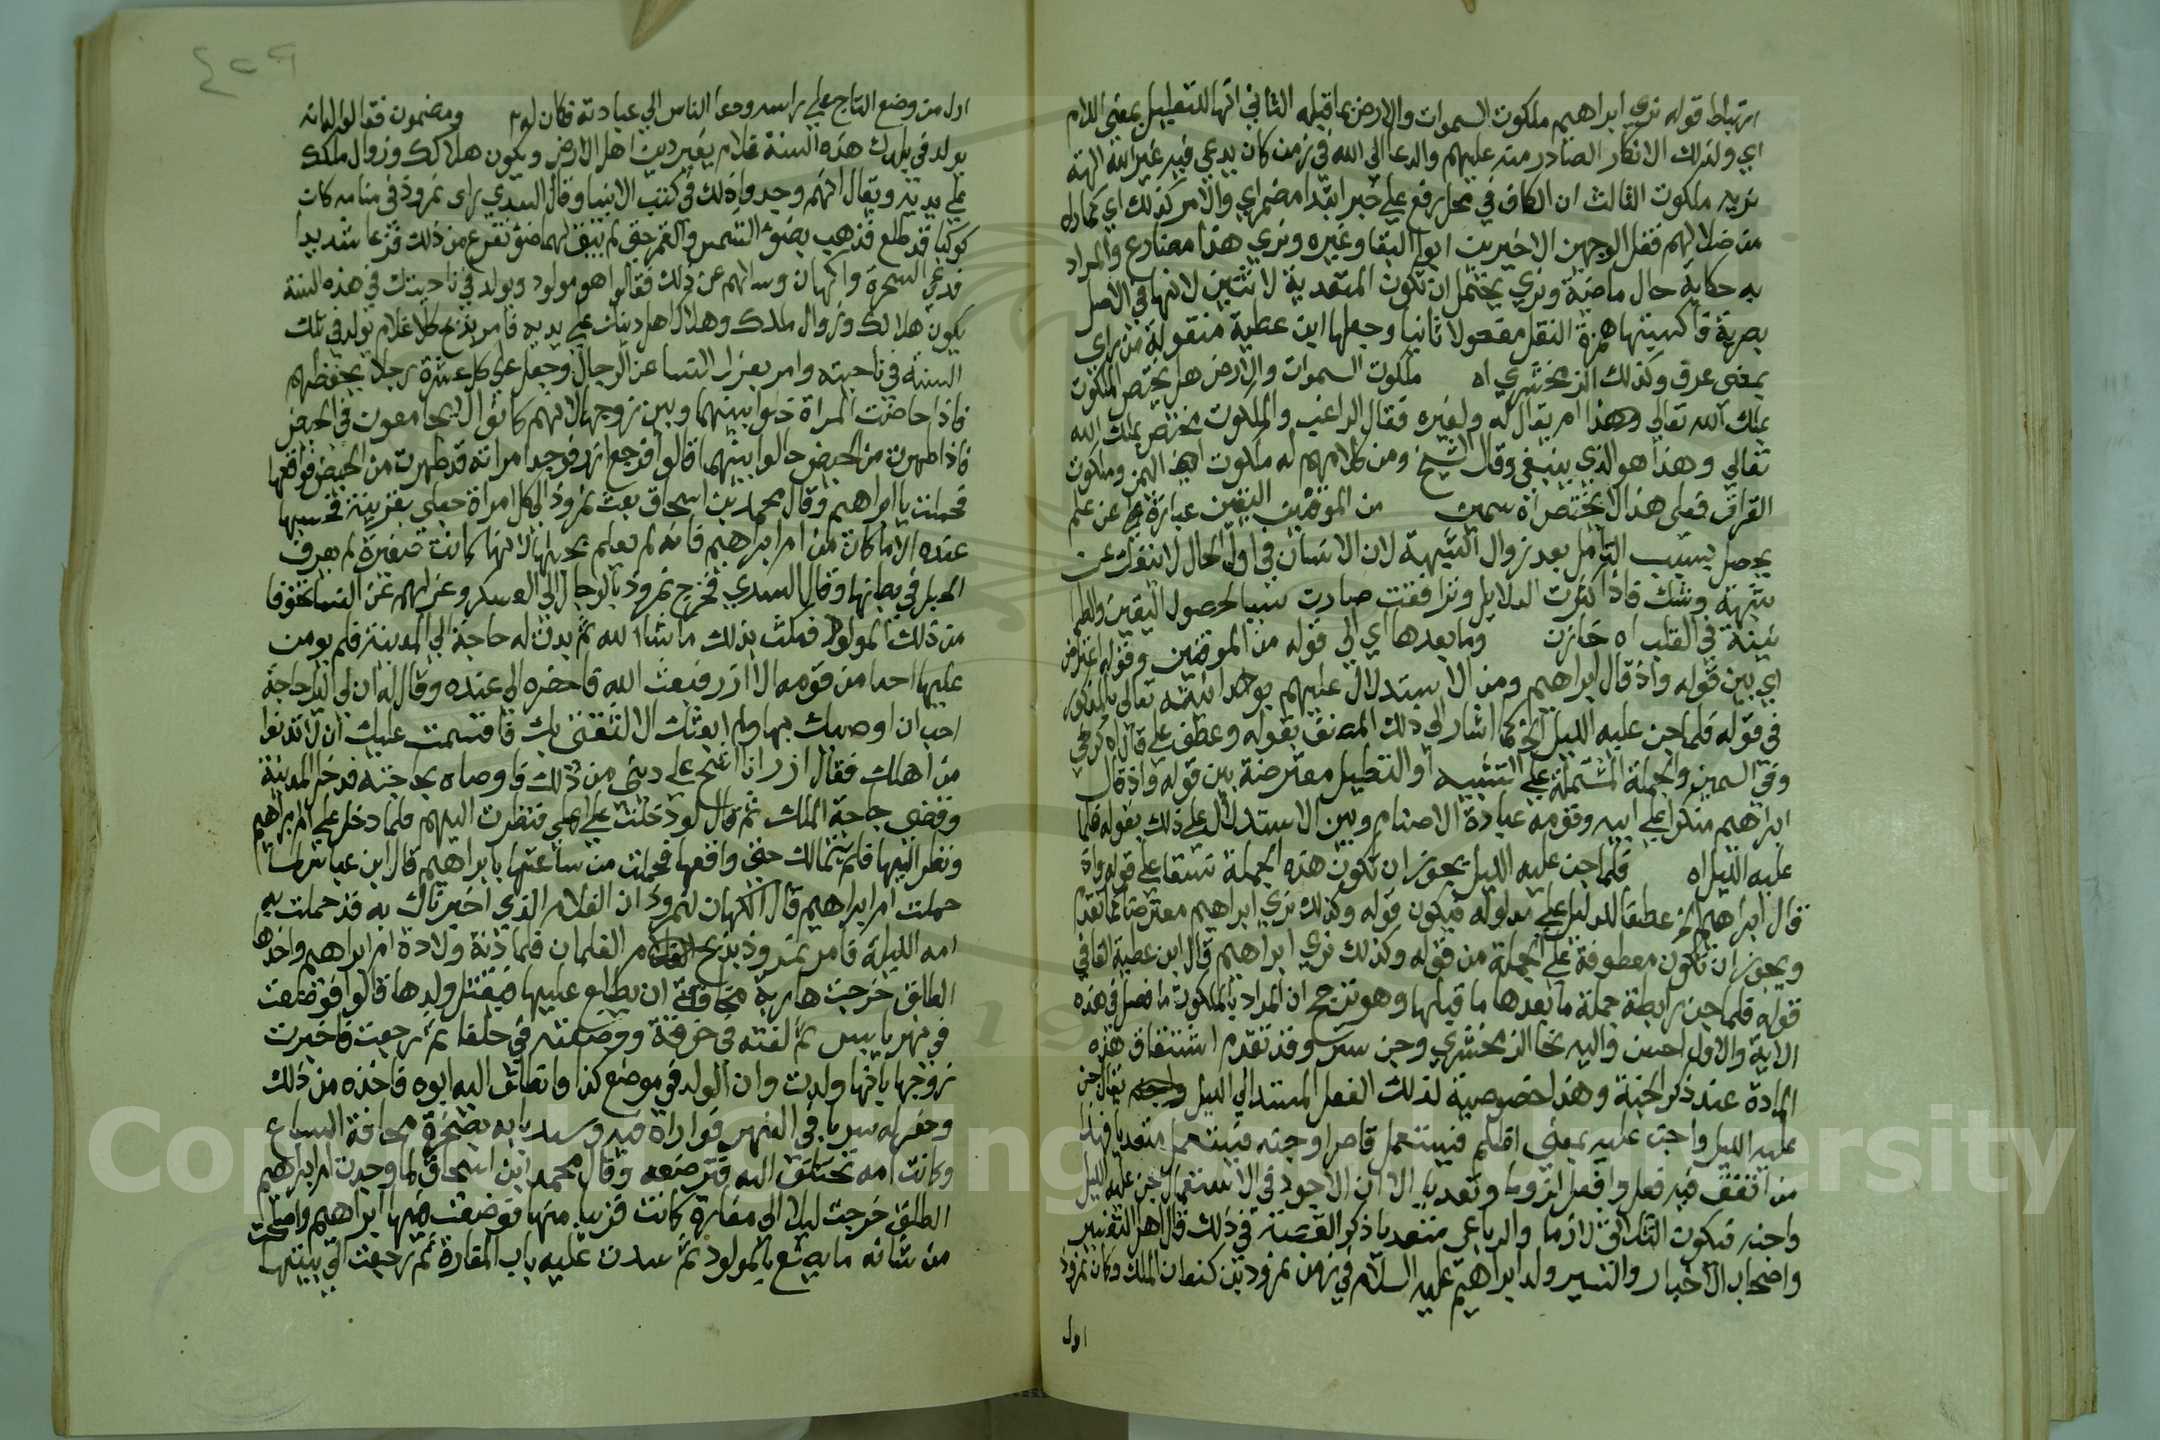 ارتباط قوله نري ابراهيم ملكوت السموات والارض بما قبله الثاني انها للتعليل بمعنى اللام
اي ولذلك الانكار الصادر منه عليهم والدعا الى الله في زمن كان يدعي فيه غير الله الهة
نريه ملكوت الثالث ان الكاف في محل رفع على خبر ابتدا مضمر اي والامر كذلك اي كما راه
من ضلالهم نقل الوجهين الاخيرين ابو البقا وغيره ونري هذا مضارع والمراد
به حكاية حال ماضية ونري يحتمل ان تكون المتعدية لاثنين لانها في الاصل
بصرية فاكسبتها همزة النقل مفعولا ثانيا وجعلها ابن عطية منقولة من راى
بمعنى عرف وكذلك الزمخشري اه ملكوت السموات والارض هل يختص الملكوت
بملك الله تعالى وهذا امر يقال له ولغيره فقال الراغب والملكوت مختص بملك الله
تعالى وهذا هو الذي ينبغي وقال الشيخ ومن كلامهم له ملكوت اليمن وملكوت
العراق فعلى هذا لا يختص اه سمين من الموقنين اليقين عبارة عن علم
يحصل بسبب التامل بعد زوال الشبهة لان الانسان في اول الحال لا ينفك عن
شبهة وشك فاذا كثرت الدلايل وتوافقت صارت سببا لحصول اليقين والطما
نينة في القلب اه خازن وما بعدها اي الى قوله من الموقنين وقوله اعتراض
اي بين قوله واذ قال ابراهيم وبين الاستدلال عليهم بوحدانيته تعالى المذكور
في قوله فلما جن عليه الليل الخ كما اشار الى ذلك المصنف بقوله وعطف على قال اه كرخي
وفي السمين والجملة المشتملة على التشبيه او التعليل معترضة بين قوله واذ قال
ابراهيم منكرا على ابيه وقومه عبادة الاصنام وبين الاستدلال على ذلك بقوله فلما
عليه الليل اه فلما جن عليه الليل يجوز ان تكون هذه الجملة نسقا على قوله واذ
قال ابراهيم الخ عطفا للدليل على مدلوله فيكون قوله وكذلك نري ابراهيم معترضا كما تقدم
ويجوز ان تكون معطوفة على الجملة من قوله وكذلك نري ابراهيم قال ابن عطية الفا في
قوله فلما جن رابطة جملة ما بعدها ما قبلها وهو ترجح ان المراد بالملكوت ما فصل في هذه
الاية والاول احسن واليه نحا الزمخشري وجن ستر وقد تقدم اشتقاق هذه
المادة عند ذكر الجنة وهذا خصوصية لذلك الفعل المسند الى الليل يقال جن
عليه الليل واجن عليه بمعنى اظلم فيستعمل قاصرا وجنه فيستعمل متعديا فهذا
مما اتفق فيه فعل وافعل لزوما وتعديا الا ان الاجود في الاستعمال جن عليه الليل
واجنه فيكون الثلاثي لازما والرباعي متعديا ذكر القصة في ذلك قال اهل التفسير
واصحاب الاخبار والسير ولد ابراهيم عليه السلام في زمن نمرود بن كنعان الملك وكان نمرود
اول
اول من وضع التاج على راسه ودعا الناس الى عبادته فكان له ومنجمون فقالوا له انه
يولد في بلدك هذه السنة غلام يغير دين اهل الارض ويكون هلاكك وزوال ملكك
على يديه ويقال انهم وجدوا ذلك في كتب الانبيا وقال السدي راى نمرود في منامه كان
كوكبا قد طلع فذهب بضوء الشمس والقمر حتى لم يبق لهما ضو ففزع من ذلك فزعا شديدا
فدعى السحرة والكهان وسالهم عن ذلك فقالوا هو مولود ويولد في ناحيتك في هذه السنة
يكون هلاكك وزوال ملكك وهلاك اهل دينك على يديه فامر بذبح كل غلام يولد في تلك
السنة في ناحيته وامر بعزل النسا عن الرجال وجعل على كل عشرة رجلا يحفظهم
فاذا حاضت المراة خلوا بينهما وبين زوجها لانهم كانوا لا يجامعون في الحيض
فاذا طهرت من الحيض حالوا بينهما قالوا فرجع ازر فوجد امراته قد طهرت من الحيض فواقعها
فحملت بابراهيم وقال محمد بن اسحاق بعث نمرود الى كل امراة حبلى بقرية فحبسها
عنده الا ما كان من ام ابراهيم فانه لم يعلم بحبلها لانها كانت صغيرة لم يعرف
الحبل في بطنها وقال السدي فخرج نمرود بالرجال الى العسكر وعزلهم عن النسا تخوفا
من ذلك المولود فمكث بذلك ما شا الله ثم بدت له حاجة الى المدينة فلم يومن
عليها احدا من قومه الا ازر فبعث الله فاحضره الى عنده وقال له ان لي اليك حاجة
احب ان اوصيك بها ولم ابعثك الا لثقتي بك فاقسمت عليك ان لا تدنوا
من اهلك فقال ازر انا اشح على ديني من ذلك فاوصاه بحاجته فدخل المدينة
وقضى حاجة الملك ثم قال لو دخلت على اهلي فنظرت اليهم فلما دخل على ام ابراهيم
ونظر اليها فلم يتمالك حتى واقعها فحملت من ساعتها بابراهيم قال ابن عباس لما
حملت ام ابراهيم قال الكهان لنمرود ان الغلام الذي اخبرناك به قد حملت به
امه الليلة فامر نمرود بذبح الغلمان فلما دنة ولادة ام ابراهيم واخذها
الطلق خرجت هاربة مخافة ان يطلع عليها فيقتل ولدها قالوا فوضعت
في نهر يابس ثم لفته في خرقة ووضعته في حلفا ثم رجعت فاخبرت
زوجها بانها ولدت وان الولد في موضع كذا فانطلق اليه ابوه فاخذه من ذلك
وحفر له سربا في النهر فواراه فيه وسد بابه بصخرة مخافة السباع
وكانت امه تختلف اليه فترضعه وقال محمد ابن اسحاق لما وجدت ام ابراهيم
الطلق خرجت ليلا الى مغارة كانت قريبا منها فوضعت فيها ابراهيم واصلحت
من شانه ما يصنع بالمولود ثم سدت عليه باب المغارة ثم رجعت الى بيتها
Copyright © King Saud University